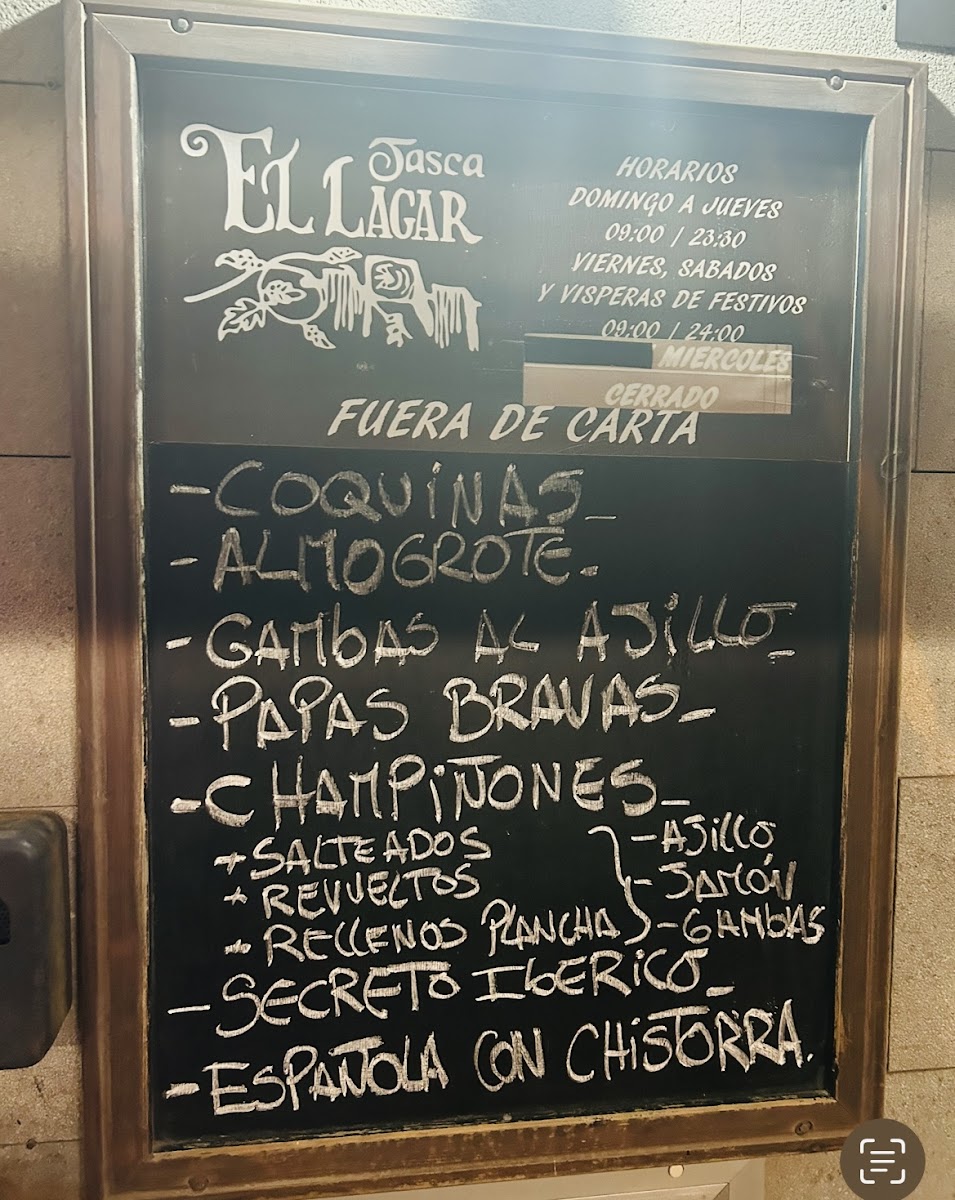 Tasca
EL LAGAR
HORARIOS
DOMINGO A JUEVES
09:00 / 23:30
VIERNES, SABADOS
Y VISPERAS DE FESTIVOS
09:00 / 24:00
MIERCOLES
CERRADO
FUERA DE CARTA
- COQUINAS_
- ALMOGROTE.
- GAMBAS AL AJILLO_
- PAPAS BRAVAS_
- CHAMPIÑONES_
+ SALTEADOS } - AJILLO
+ REVUELTOS - JAMÓN
+ RELLENOS PLANCHA - GAMBAS
- SECRETO IBERICO_
- ESPAÑOLA CON CHISTORRA.